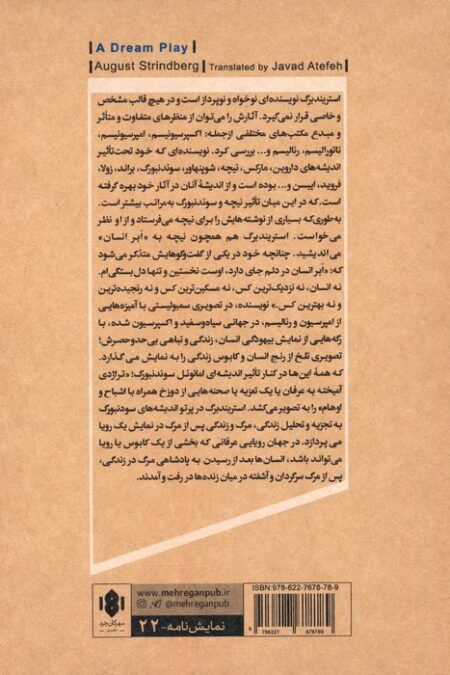 A Dream Play
August Strindberg Translated by Javad Atefeh
استریندبرگ نویسنده‌ای نوخواه و نوپرداز است و در هیچ قالب مشخص
و خاصی قرار نمی‌گیرد. آثارش را می‌توان از منظرهای متفاوت و متأثر
و مبدع مکتب‌های مختلفی ازجمله: اکسپرسیونیسم، امپرسیونیسم،
ناتورالیسم، رئالیسم و... بررسی کرد. نویسنده‌ای که خود تحت‌تأثیر
اندیشه‌های داروین، مارکس، نیچه، شوپنهاور، سوئدنبورگ، براند، زولا،
فروید، ایبسن و... بوده است و از اندیشهٔ آنان در آثار خود بهره گرفته
است.که در این میان تأثیر نیچه و سوئدنبورگ به‌مراتب بیشتر است.
به‌طوری‌که بسیاری از نوشته‌هایش را برای نیچه می‌فرستاد و از او نظر
می‌خواست. استریندبرگ هم همچون نیچه به «اَبر انسان»
می‌اندیشید. چنانچه خود در یکی از گفت‌وگوهایش متذکر می‌شود
که: «اَبر انسان در دلم جای دارد، اوست نخستین و تنها دل بستگی‌ام.
نه انسان، نه نزدیک‌ترین کس، نه مسکین‌ترین کس و نه رنجیده‌ترین
و نه بهترین کس.» نویسنده، در تصویری سمبولیستی با آمیزه‌هایی
از امپرسیون و رئالیسم، در جهانی سیاه‌وسفید و اکسپرسیون شده، با
رگه‌هایی از نمایش بیهودگی انسان، زندگی و تباهی بی‌حدوحصرش؛
تصویری تلخ از رنج انسان و کابوس زندگی را به نمایش می گذارد.
که همهٔ این‌ها در کنار تأثیر اندیشه‌ای امانوئل سوئدنبورگ؛ «تراژدی
آمیخته به عرفان یا یک تعزیه با صحنه‌هایی از دوزخ همراه با اشباح و
اوهام» را به تصویر می‌کشد. استریندبرگ در پرتو اندیشه‌های سودنبورگ
به تجزیه و تحلیل زندگی، مرگ و زندگی پس از مرگ در نمایش یک رویا
می پردازد. در جهان رویایی عرفانی که بخشی از یک کابوس یا رویا
می‌تواند باشد، انسان‌ها بعد از رسیدن به پادشاهی مرگ در زندگی،
پس از مرگ سرگردان و آشفته در میان زنده‌ها در رفت و آمدند.
www.mehreganpub.ir
@mehreganpub
نمایش‌نامه-۲۲
ISBN:978-622-7678-78-9
9 786227 678789